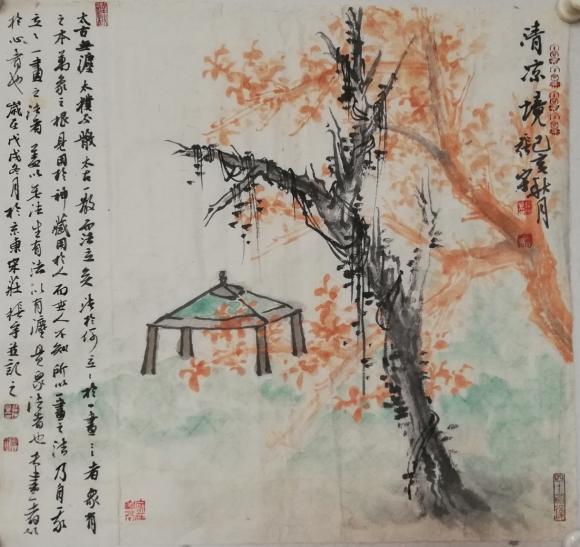 清凉境
己亥秋月
太古無灋太樸不散太古一散而法立矣法於何立〻於一畫〻者眾有
之本萬象之根見用於神藏用於人而世人不知所以一畫之法乃自我
立〻一畫之法者蓋以無法生有法以有灋貫眾法也夫畫者從
於心者也歲在戊戌冬月於京東宋莊並記之